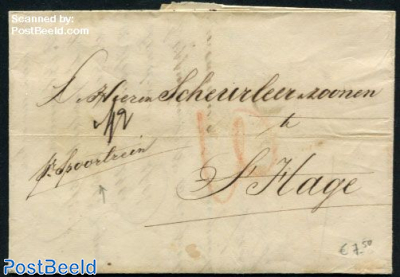 Scanned by:
PostBeeld.com
Heeren Scheurleer & zoonen
te
pr Spoortrein
S'Hage
€ 7.50
PostBeeld